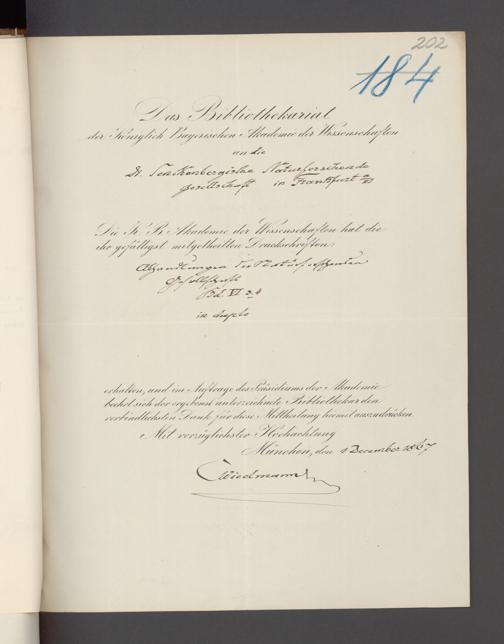 202
184
Das Bibliothekariat
der Königlich Bayerischen Akademie der Wissenschaften
an die
Dr. Senckenbergische Naturforschende
Gesellschaft in Frankfurt a/M
Die K. B. Akademie der Wissenschaften hat die
ihr gefälligst mitgetheilten Druckschriften:
Abhandlungen der Naturforschenden
Gesellschaft
Bd. VI
in duplo
erhalten, und im Auftrage des Präsidiums der Akademie
beehrt sich der ergebenst unterzeichnete Bibliothekar den
verbindlichsten Dank für diese Mittheilung hiemit auszudrücken.
Mit vorzüglichster Hochachtung
München, den 1 December 1867
Wiedmann